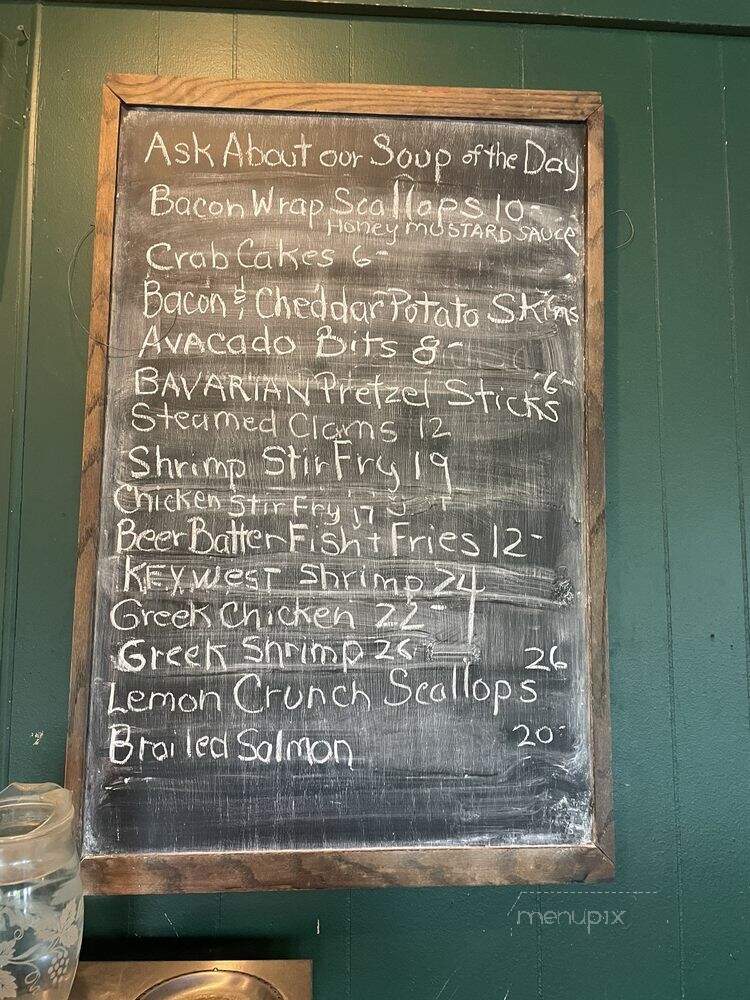 Ask About our Soup of the Day
Bacon Wrap Scallops 10-
Honey MUSTARD SAUCE
Crab Cakes 6-
Bacon & Cheddar Potato Skins
Avacado Bits 8-
BAVARIAN Pretzel Sticks 6-
Steamed Clams 12
Shrimp Stir Fry 19
Chicken Stir Fry 17
Beer Batter Fish + Fries 12-
KEY WEST Shrimp 24
Greek Chicken 22-
Greek Shrimp 26
Lemon Crunch Scallops 26
Broiled Salmon 20-
menupix